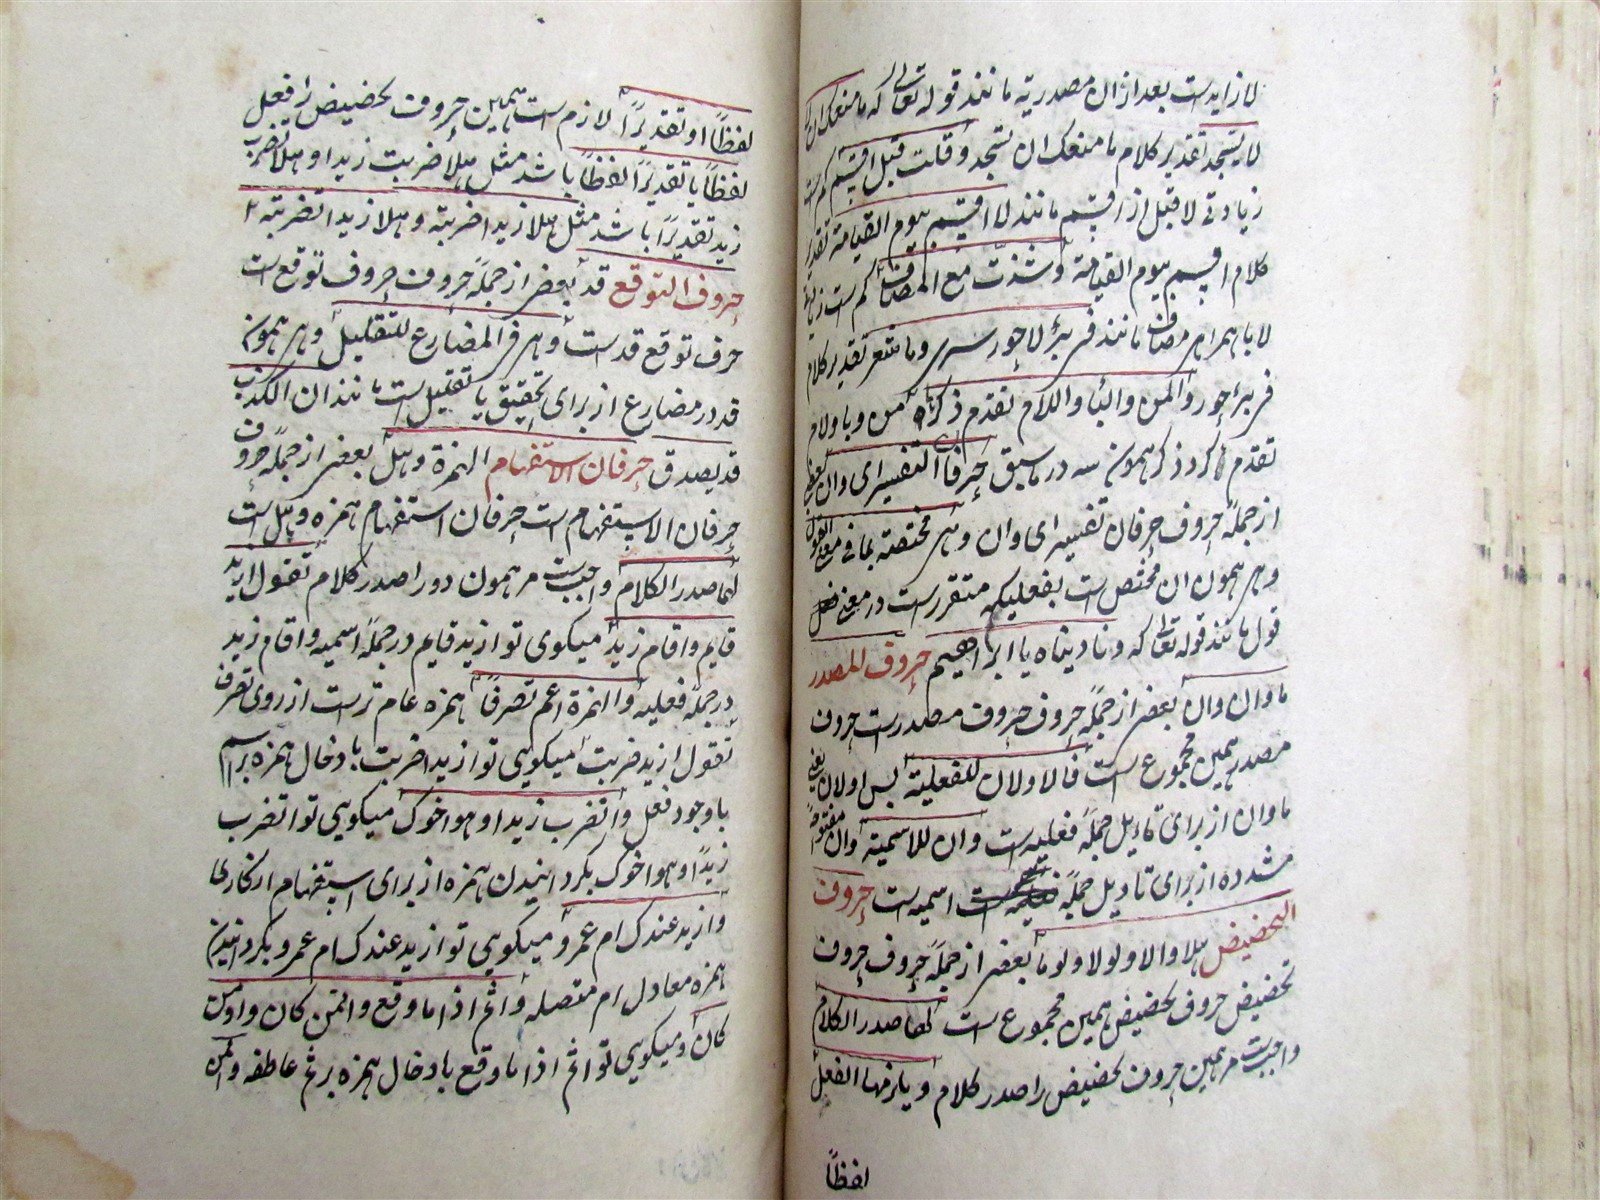 لا زایدست بعد از ان مصدریة مانند قوله تعالی که ما منعک ان
لا یسجد تقدیر کلام ما منعک ان تسجد وقلت قبل اقسم کم است
زیادتی لا قبل از اقسم مانند لا اقسم بیوم القیامة تقدیر
کلام اقسم بیوم القیامة وشذت مع المضاف کم است زیادتی
لا با همراهی مضاف مانند فی بئر لا حور سری وما شعر تقدیر کلام
فی بئر حور ومن والبا واللام تقدم ذکرها من وبا ولام
تقدم کرد ذکر همون سه در ما سبق حرفا التفسیر ای وان بعضی
از جملهٔ حروف حرفان تفسیر ای وان وهی مختصة بما فی معنی القول
وهی همون ان مختص است بفعلیکه متقررست در معنی
قول مانند قوله تعالی که ونادیناه یا ابراهیم حروف المصدر
ما وان وان بعضی از جملهٔ حروف حروف مصدرست حروف
مصدر همین مجموع است فالاولان للفعلیة پس اولان یعنی
ما وان از برای تاویل جملهٔ فعلیه است وان للاسمیة وان مفتوحهٔ
مشدده از برای تاویل جملهٔ اسمیه است حروف
التحضیض هلا والا ولولا ولوما بعضی از جملهٔ حروف حروف
تحضیض حروف تحضیض همین مجموع است لها صدر الکلام
واجبست مر همین حروف تحضیض را صدر کلام ویلزمها الفعل
لفظاً
لفظاً او تقدیراً لازم است همین حروف تحضیض را فعل
لفظاً یا تقدیراً لفظاً باشد مثل هلا ضربت زیدا وهلا تضرب
زید تقدیراً باشد مثل هلا زیدا ضربته وهلا زیدا تضربته
حروف التوقع قد بعضی از جملهٔ حروف حروف توقع است
حرف توقع قد است وهی فی المضارع للتقلیل وهی همون
قد در مضارع از برای تحقیق یا تقلیل است مانند ان الکذوب
قد یصدق حرفان الاستفهام الهمزة وهل بعضی از جملهٔ حروف
حرفان الاستفهام است حرفان استفهام همزه وهل است
لهما صدر الکلام واجبست مر همون دو را صدر کلام تقول ازید
قایم واقام زید میکوی تو ازید قایم در جملهٔ اسمیه واقام زید
در جملهٔ فعلیه والهمزة اعم تصرفاً همزه عام ترست از روی تصرف
تقول ازیدا ضربت میکوی تو ازیدا ضربت بادخال همزه بر اسم
با وجود فعل واتضرب زیدا وهو اخوک میکویی تو اتضرب
زیداً وهو اخوک بکردانیدن همزه از برای استفهام انکاری
وازید عندک ام عمرو میکویی تو ازید عندک ام عمرو بکردانیدن
همزه معادل ام متصله واثم اذا ما وقع وافمن کان واومن
کان میکویی تو اثم اذا ما وقع بادخال همزه بر ثم عاطفه وافمن